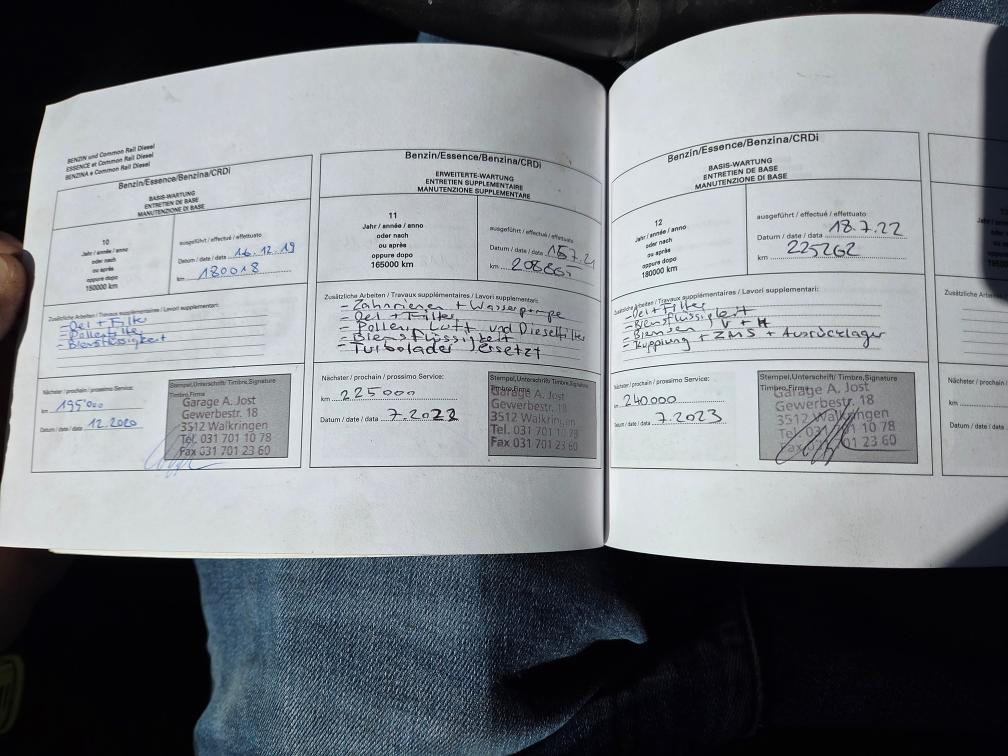 BENZIN und Common Rail Diesel
ESSENCE et Common Rail Diesel
BENZINA e Common Rail Diesel
Benzin/Essence/Benzina/CRDi
BASIS-WARTUNG
ENTRETIEN DE BASE
MANUTENZIONE DI BASE
10
Jahr / année / anno
oder nach
ou après
oppure dopo
150000 km
ausgeführt / effectué / effettuato
Datum / date / data 16.12.19
km 180018
Zusätzliche Arbeiten / Travaux supplémentaires / Lavori supplementari:
- Oel + Filter
- Pollenfilter
- Bremsflüssigkeit
Nächster / prochain / prossimo Service:
km 195'000
Datum / date / data 12.2020
Stempel,Unterschrift/ Timbre,Signature
Timbro,Firma
Garage A. Jost
Gewerbestr. 18
3512 Walkringen
Tel. 031 701 10 78
Fax 031 701 23 60
Benzin/Essence/Benzina/CRDi
ERWEITERTE-WARTUNG
ENTRETIEN SUPPLEMENTAIRE
MANUTENZIONE SUPPLEMENTARE
11
Jahr / année / anno
oder nach
ou après
oppure dopo
165000 km
ausgeführt / effectué / effettuato
Datum / date / data
km
Zusätzliche Arbeiten / Travaux supplémentaires / Lavori supplementari:
- Zahnriemen + Wasserpumpe
- Oel + Filter
- Pollen, Luft und Dieselfilter
- Bremsflüssigkeit
- Turbolader ersetzt
Nächster / prochain / prossimo Service:
km 225000
Datum / date / data 7.2022
Stempel,Unterschrift/ Timbre,Signature
Timbro,Firma
Garage A. Jost
Gewerbestr. 18
3512 Walkringen
Tel. 031 701 10 78
Fax 031 701 23 60
Benzin/Essence/Benzina/CRDi
BASIS-WARTUNG
ENTRETIEN DE BASE
MANUTENZIONE DI BASE
12
Jahr / année / anno
oder nach
ou après
oppure dopo
180000 km
ausgeführt / effectué / effettuato
Datum / date / data 18.7.22
km 225262
Zusätzliche Arbeiten / Travaux supplémentaires / Lavori supplementari:
- Oel + Filter
- Bremsflüssigkeit
- Bremsen V + H
- Kupplung + ZMS + Ausrücklager
Nächster / prochain / prossimo Service:
km 240000
Datum / date / data 7.2023
Stempel,Unterschrift/ Timbre,Signature
Timbro,Firma
Garage A. Jost
Gewerbestr. 18
3512 Walkringen
Tel. 031 701 10 78
Fax 031 701 23 60
Zusätzliche
Nächster / proch
km
Datum / date / data